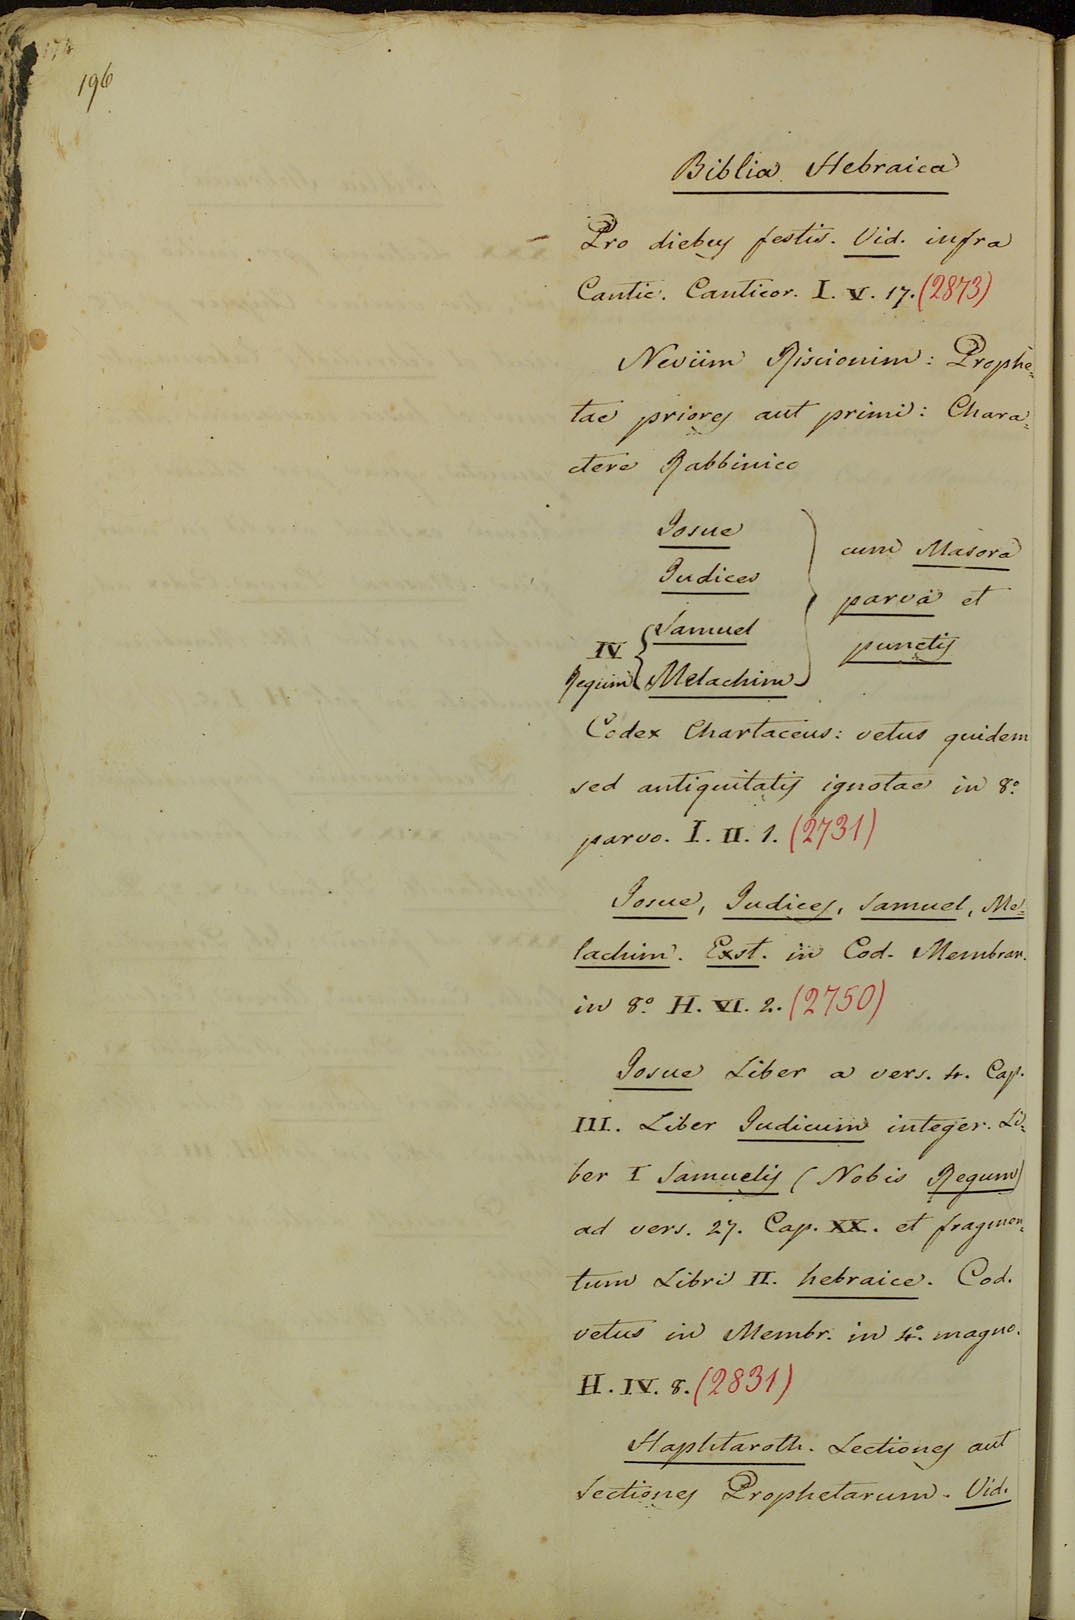 196
Biblia Hebraica
Pro diebus festis. Vid. infra
Cantic. Canticor. I. V. 17. (2873)
Neviim Riscionim: Prophe=
tae priores aut primi: Chara=
ctere Rabbinico
Josue
Judices
cum Masora
parva et
Samuel
punctis
IV
Regum
Melachim
Codex Chartaceus: vetus quidem
sed antiquitatis ignotae in 8.o
parvo. I. II. 1. (2731)
Josue, Judices, Samuel, Me=
lachim. Exst. in Cod. Membran.
in 8.o H. VI. 2. (2750)
Josue Liber a vers. 4. Cap.
III. Liber Judicum integer. Li=
ber I Samuelis (Nobis Regum)
ad vers. 27. Cap. XX. et fragmen=
tum Libri II. hebraice. Cod.
vetus in Membr. in 4.o magno.
H. IV. 8. (2831)
Haphtaroth. Lectiones aut
Sectiones Prophetarum. Vid.